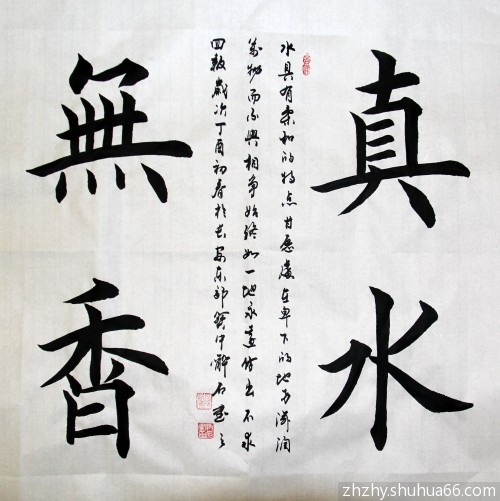 真水
水具有柔和的特点甘愿處在卑下的地方滋润
萬物而不與相争始终如一地永遠付出不求
回報歲次丁酉初春於长安东郊
無香
zhzhy.shuhua66.com